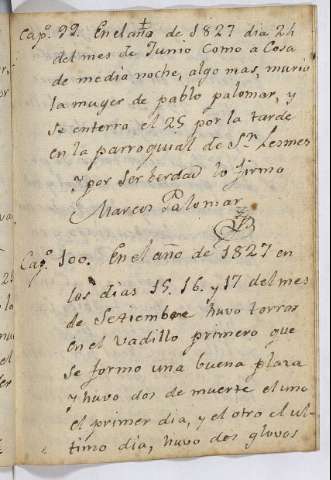 Capº. 99. En el año de 1827 dia 24
del mes de Junio Como a Cosa
de media noche, algo mas, murio
la muger de pablo palomar, y
se enterro el 25 por la tarde
en la parroquial de Sⁿ. Lesmes
y por ser berdad lo firmo
Marcos Palomar
Capº. 100. En el año de 1827 en
los dias 15. 16. y 17 del mes
de Setiembre huvo torros
en el Vadillo primero que
se formo una buena plaza
y huvo dos de muerte el uno
el primer dia, y el otro el ul-
timo dia, huvo dos glovos